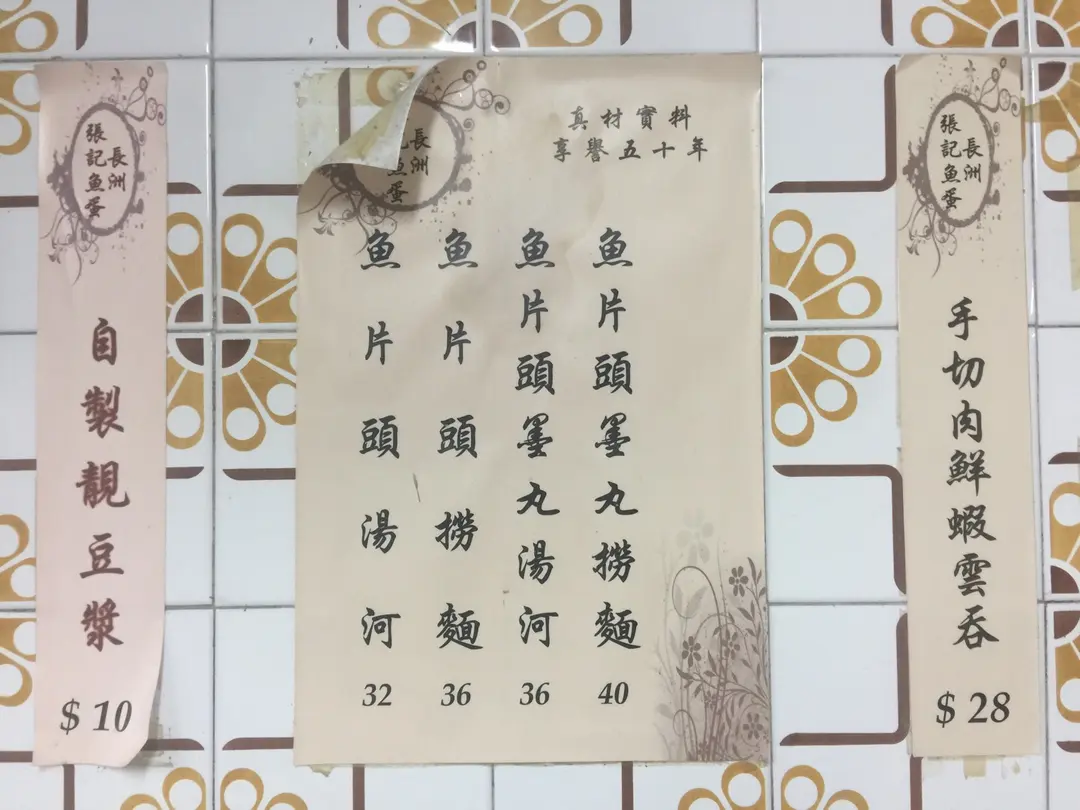 長洲
張記魚蛋
自製靚豆漿
$ 10
真材實料
享譽五十年
長洲
魚蛋
魚片頭湯河
32
魚片頭撈麵
36
魚片頭墨丸湯河
36
魚片頭墨丸撈麵
40
長洲
張記魚蛋
手切肉鮮蝦雲吞
$ 28